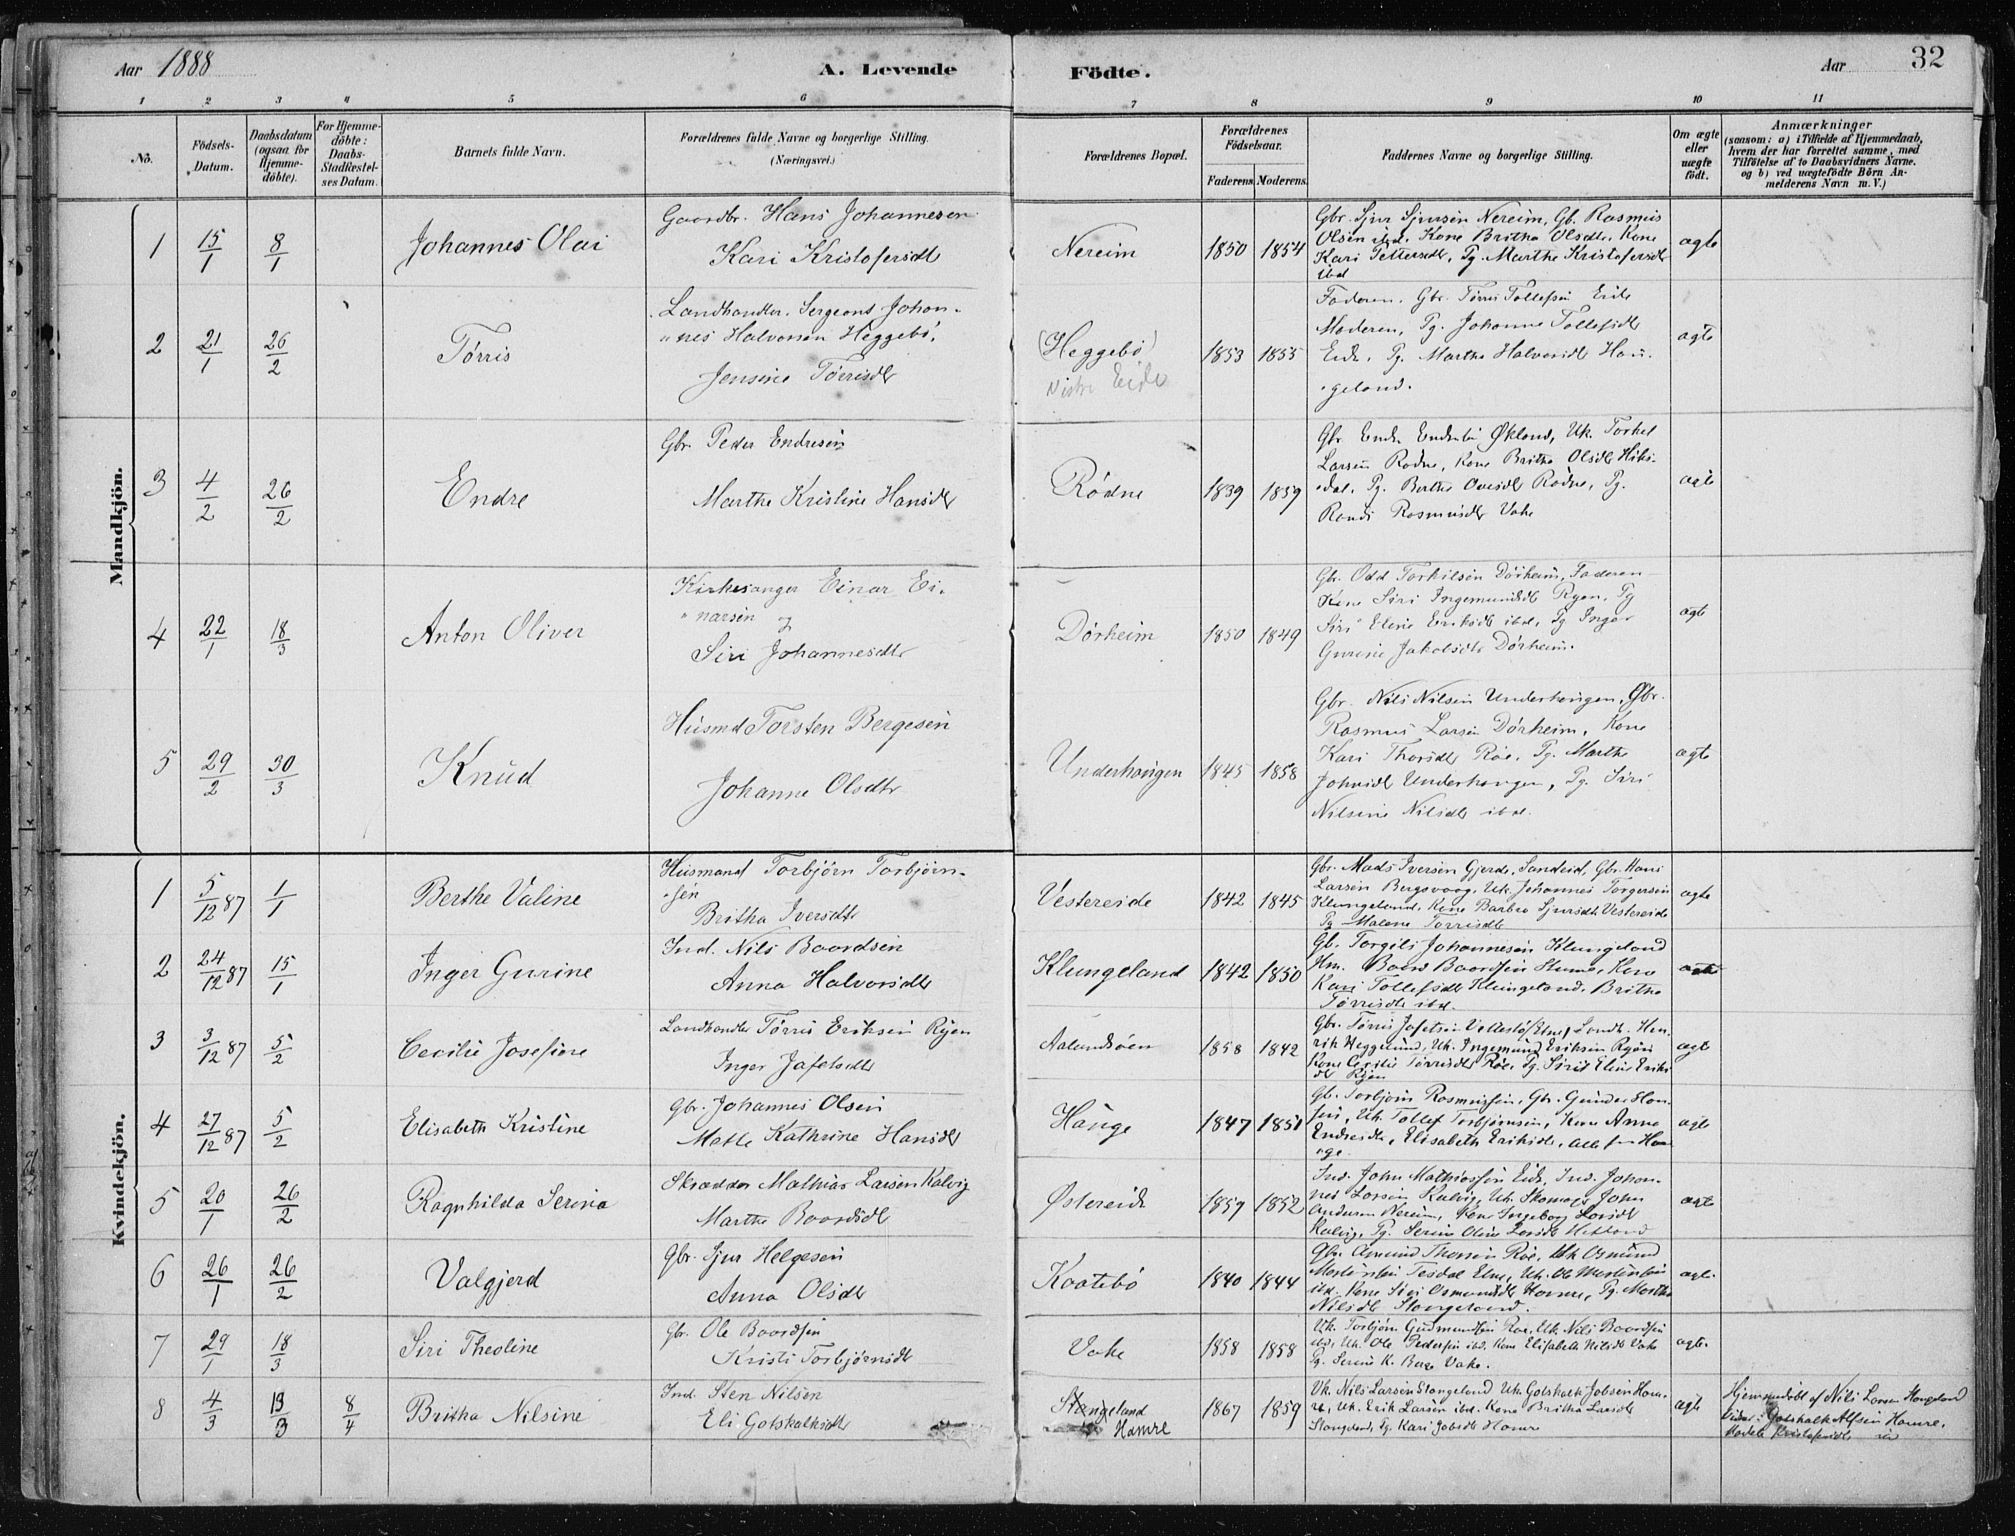 Aar 1888
A. Levende
Födte.
Aar
32
1 2 3 4 5 6 7 8 9 10 11
No.
Födsels-
Datum.
Daabsdatum
(ogsaa for
Hjemme-
döbte).
For Hjemme-
döbte:
Daabs-
Stadfæstel-
ses Datum.
Barnets fulde Navn.
Forældrenes fulde Navne og borgerlige Stilling.
(Næringsvei.)
Forældrenes Bopæl.
Forældrenes
Födselsaar.
Faderens. Moderens.
Faddernes Navne og borgerlige Stilling.
Om ægte
eller
uægte
födt.
Anmærkninger
(saasom: a) i Tilfælde af Hjemmedaab,
hvem der har forrettet samme, med
Tilföielse af to Daabsvidners Navne,
og b) ved uægtefödte Börn An-
melderens Navn m. V.)
Mandkjön.
1 15/1 8/1 Johannes Olai
Gaardbr. Hans Johannesen
Kari Kristofersdt
Nereim 1850 1854
Gbr. Sjur Sjursen Nereim, Gb. Rasmus
Olsen ibd. Kone Britha Olsdtr. Kone
Kari Pettersdt, Pg. Marthe Kristofersdt
ibd
ægte
2 21/1 26/2 Törris
Landhandler. Sergeant Johan-
nes Halvorsen Heggebö,
Jensine Törrisdt
(Heggebö)
Eide
1853 1855
Faderen. Gbr. Törris Tollefsen Eide
Moderen, Pg. Johanne Tollefsdt
Eide, Pg. Marthe Halvorsdt Hau-
geland.
ægte
3 4/2 26/2 Endre
Gbr. Peder Endresen
Marthe Kristine Hansdt
Rödne 1839 1859
Gbr Endre Endresen Økland, Uk. Torkel
Larsen Rodne, Kone Britha Olsdt Hiks-
dal, Pg. Berthe Ovesdt Rodne, Pg.
Randi Rasmusdt Vake
ægte
4 22/1 18/3 Anton Oliver
Kirkesanger Einar Ei-
narsen
Siri Johannesdt
Dörheim 1850 1849
Gbr. Odd Torkilsen Dörheim, Faderen
Kone Siri Ingemundsdt Ryen, Pg
Siri Eline Eriksdt ibd, Pg Inger
Gurine Jakobsdt Dörheim.
ægte
5 29/2 30/3 Knud
Husmd Torsten Bergesen
Johanne Olsdtr
Underhaugen 1845 1858
Gbr. Nils Nilsen Underhaugen, Gbr.
Rasmus Larsen Dörheim, Kone
Kari Thorsdt Röe, Pg. Marthe
Underhaugen, Pg. Siri
Nilsine Nilsdt ibd.
ægte
Kvindekjön.
1 5/12 87 1/1 Berthe Valine
Husmand Torbjörn Torbjörn-
sen
Britha Iversdt
Vestereide 1842 1845
Gbr. Mads Iversen Gjerde, Sandeid, Gbr. Hans
Larsen Bergsvaag, Uk. Johannes Torgersen
Klungeland, Kone Barbro Sjursdt Vestereide
Pg Malene Torrisdt
ægte
2 24/12 87 15/1 Inger Gurine
Ind. Nils Baardsen
Anna Halvorsdt
Klungeland 1842 1850
Gb. Torgils Johannesen Klungeland
Hm. Baard Baardsen Kone
Kari Tollefsdt Klungeland, Britha
Törrisdt ibd.
ægte
3 3/12 87 5/2 Cecilie Josefine
Landhandler Törris Eriksen Ryen
Inger Jafetsdt
Aalandsöen 1858 1842
Gbr. Törris Jafetsen Landh. Hen-
rik Heggelund, Uk. Ingemund Eriksen Ryen
Kone Cecilie Törrisdt Röe, Pg. Siri Eline Eriks
dt Ryen
ægte
4 27/12 87 5/2 Elisabeth Kristine
Gbr. Johannes Olsen
Mette Kathrine Hansdt
Hauge 1847 1851
Gb. Torbjörn Rasmussen, Gbr. Gunder
Uk. Tollef Torbjörnsen, Kone Anne
Endresdt, Elisabeth Eriksdt, alle fra Hau
ge.
ægte
5 20/1 26/2 Ragnhilda Serina
Skrædder Mathias Larsen Kalvig
Marthe Baardsdt
Østereide 1859 1852
Ind. John Mathiassen Eide, Ind. Johan-
nes Larsen Kalvig, Uk. Skomag. John
Andersen Nereim, Kone Ingeborg Larsdt
Kalvig, Pg. Serine Oline Larsdt
ægte
6 26/1 26/2 Valgjerd
Gbr. Sjur Helgesen
Anna Olsdt
Kaatebö 1840 1844
Gbr. Amund Thorsen Röe, Uk Osmund
Mortensen Tesdal Etne, Uk. Ole Mortensen
ibd. Kone Siri Osmundsdt Hamre, Pg. Martha
Nilsdt Stangeland.
ægte.
7 29/1 18/3 Siri Theoline
Gbr. Ole Baardsen
Kristi Torbjörnsdt
Vake 1858 1858
Uk. Torbjörn Gudmundsen Röe, Uk. Nils Baardsen
ibd, Uk. Ole Pedersen ibd, Kone Elisabeth Nilsdt Vake
Pg. Serine K. Vake.
ægte.
8 4/3 13/3 8/4 Britha Nilsine
Ind. Sten Nilsen
Eli Gotskalksdt
Stangeland
Hamre
1867 1859
Uk. Nils Larsen Stangeland Uk. Gotskalk Jobsen Ham-
re, Uk. Erik Larsen ibd. Kone Britha Larsdt
Stangeland, Pg. Kari Jobsdt Hamre
ægte
Hjemmedöbt af Nils Larsen Stangeland
Vidner: Gotskalk Alfsen Hamre,
Kristofersdt